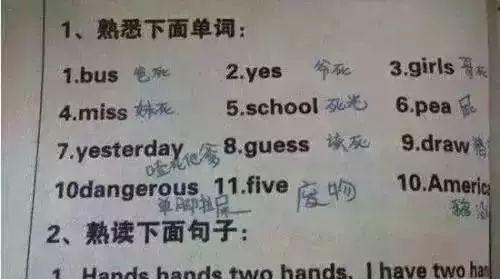 1、熟悉下面单词:
1.bus 爸死 2.yes 爷死 3.girls 哥死
4.miss 妹死 5.school 死光 6.pea 屁
7.yesterday 8.guess 该死 9.draw
10dangerous 11.five 废物 10.America
单脚拉屎
2、熟读下面句子:
1. Hands hands two hands. I have two han